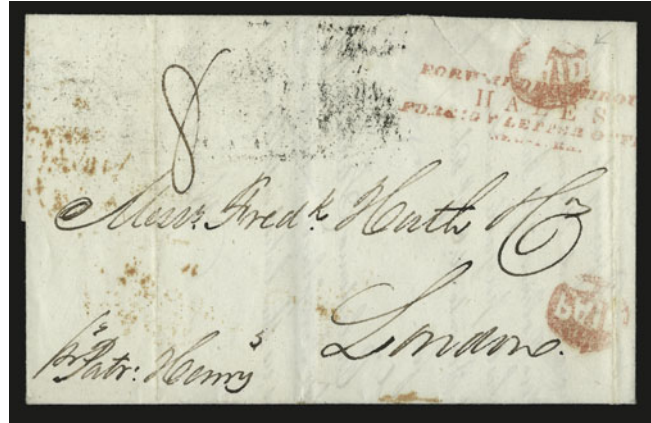 PAID
FORWARDED THROUGH
HALE'S
FOREIGN LETTER OFFICE
8
Messrs. Fredk. Huth & Co
London.
PAID
pr Patr: Henry